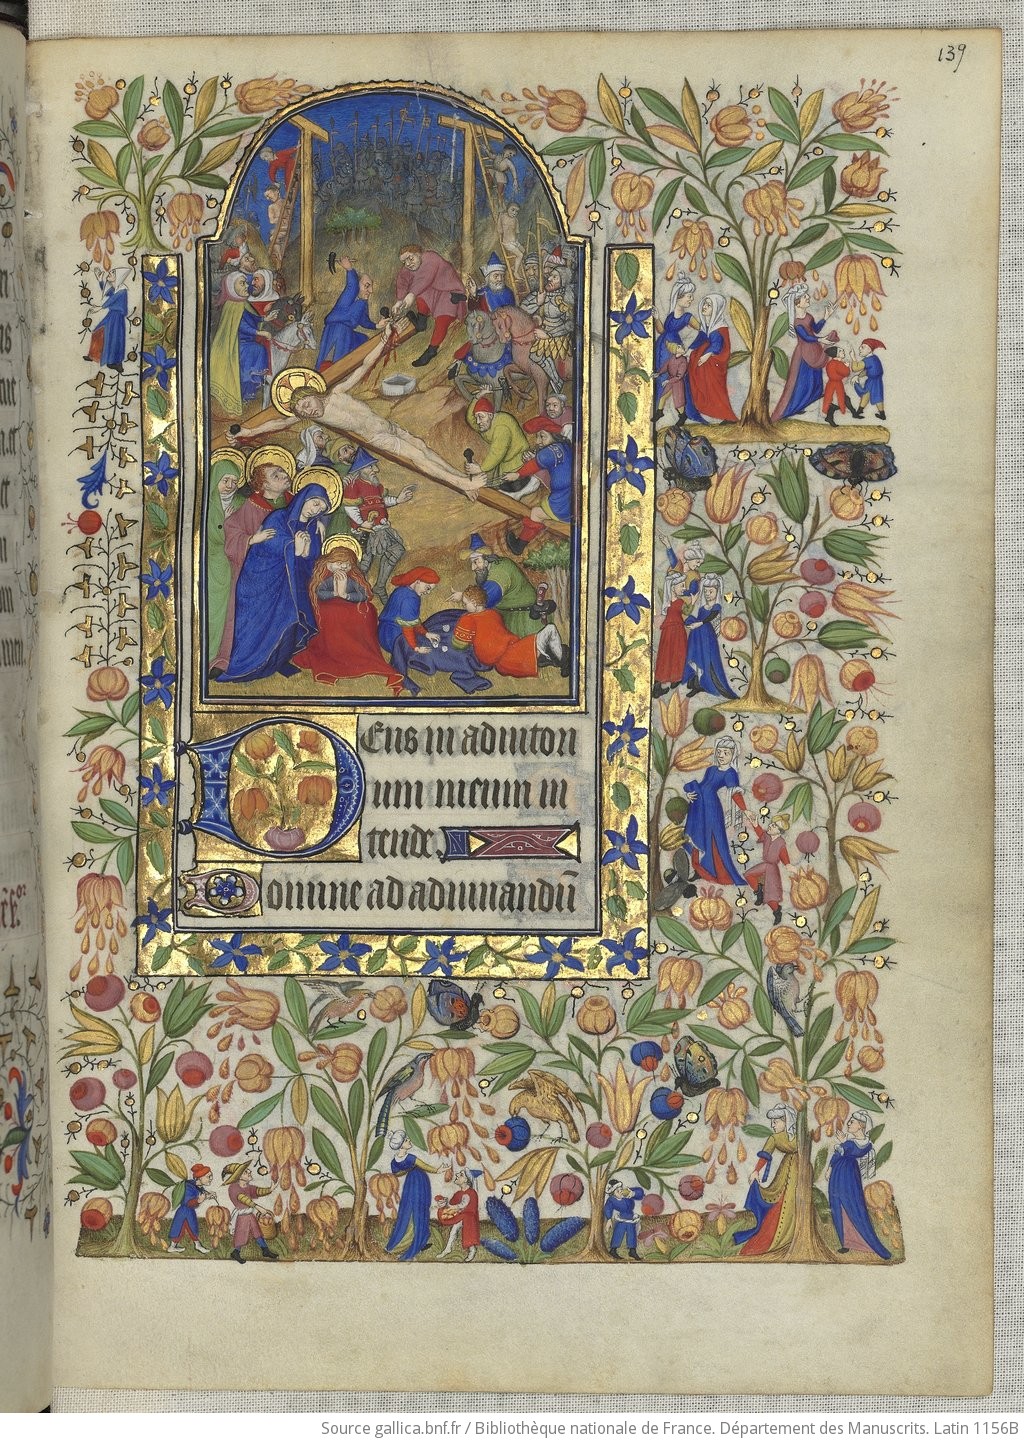 139
Deus in adiutori
um meum in
tende.
Domine ad adiuuandū
Source gallica.bnf.fr / Bibliothèque nationale de France. Département des Manuscrits. Latin 1156B